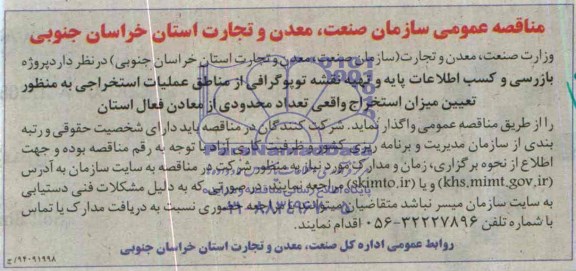 مناقصه عمومی سازمان صنعت، معدن و تجارت استان خراسان جنوبی
وزارت صنعت، معدن و تجارت(سازمان صنعت، معدن و تجارت استان خراسان جنوبی) در نظر دارد پروژه
بازرسی و کسب اطلاعات پایه و تهیه نقشه توپوگرافی از مناطق عملیات استخراجی به منظور
تعیین میزان استخراج واقعی تعداد محدودی از معادن فعال استان
را از طریق مناقصه عمومی واگذار نماید. شرکت کنندگان در مناقصه باید دارای شخصیت حقوقی و رتبه
بندی از سازمان مدیریت و برنامه ریزی کشور و ظرفیت کاری آزاد با توجه به رقم مناقصه بوده و جهت
اطلاع از نحوه برگزاری، زمان و مدارک مورد نیاز به منظور شرکت در مناقصه به سایت سازمان به آدرس
(khs.mimt.gov.ir) و یا (skimto.ir) مراجعه نمایند. در صورتی که به دلیل مشکلات فنی دستیابی
به سایت سازمان میسر نباشد متقاضیان میتوانند با مراجعه حضوری نسبت به دریافت مدارک یا تماس
با شماره تلفن ۳۲۲۲۷۸۹۶-۰۵۶ اقدام نمایند.
روابط عمومی اداره کل صنعت، معدن و تجارت استان خراسان جنوبی
۹۴۰۹۱۹۹۸/ج